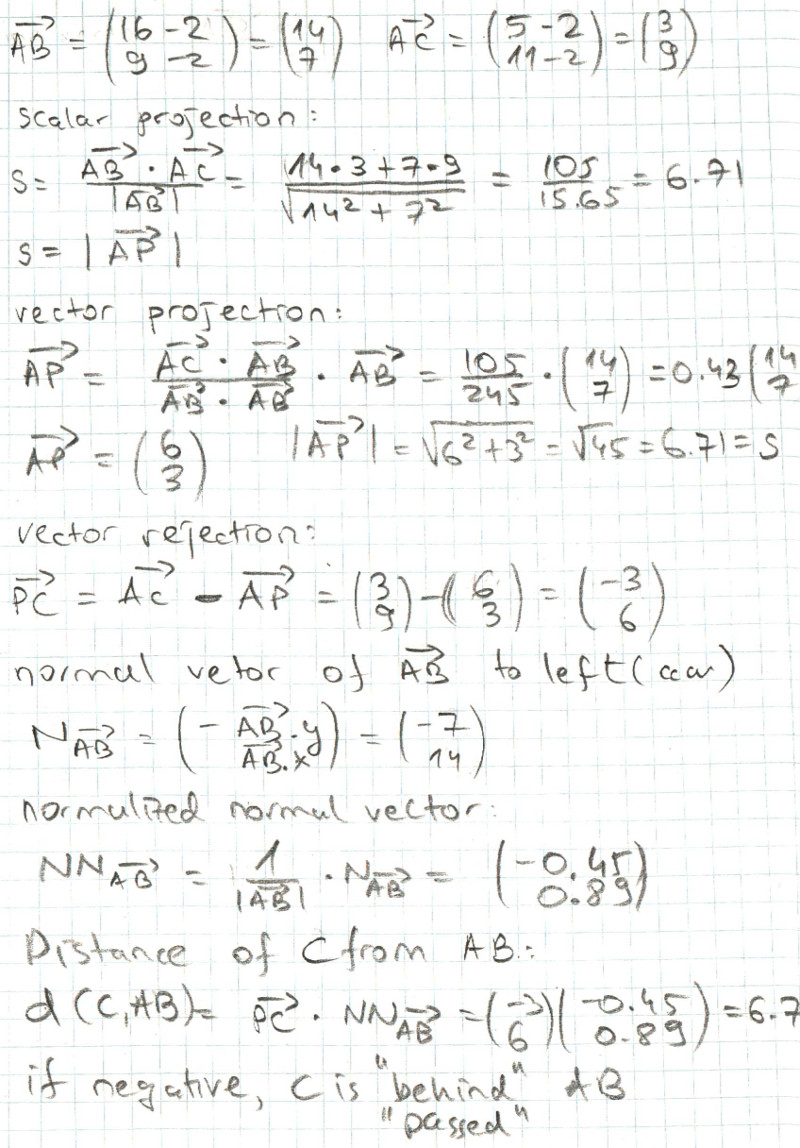 AB = (16-2 9-2) = (14 7) AC = (5-2 11-2) = (3 9)
scalar projection:
s = AB · AC / |AB| = 14·3+7·9 / √14²+7² = 105 / 15.65 = 6.71
s = |AP|
vector projection:
AP = AC · AB / AB · AB · AB = 105 / 245 · (14 7) = 0.43 (14 7
AP = (6 3) |AP| = √6²+3² = √45 = 6.71 = s
vector rejection:
PC = AC - AP = (3 9) - (6 3) = (-3 6)
normal vetor of AB to left (ccw)
N AB = (-AB.y AB.x) = (-7 14)
normalized normal vector:
NN AB = 1 / |AB| · N AB = (-0.45 0.89)
Distance of C from AB:
d(C,AB) = PC · NN AB = (-3 6) (-0.45 0.89) = 6.7
if negative, C is "behind" AB
"passed"